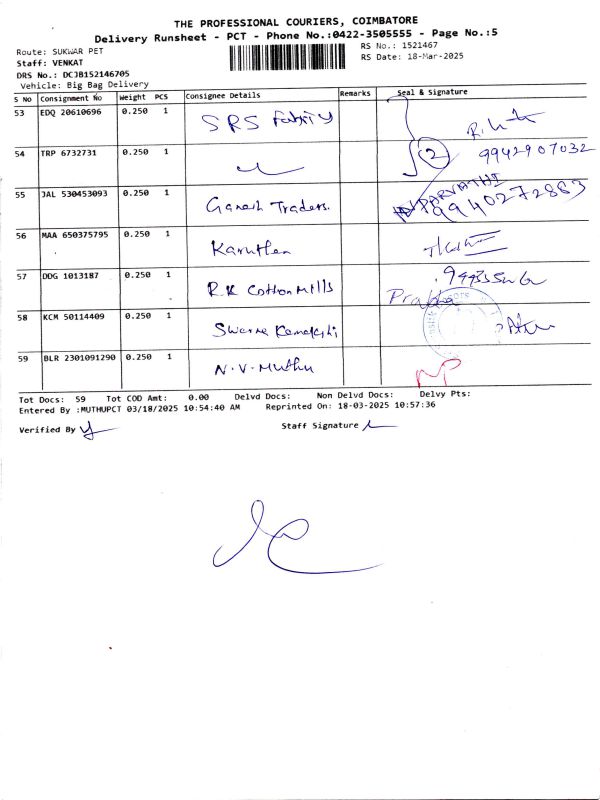 THE PROFESSIONAL COURIERS, COIMBATORE
Delivery Runsheet - PCT - Phone No.:0422-3505555 - Page No.:5
Route: SUKWAR PET
RS No.: 1521467
Staff: VENKAT
RS Date: 18-Mar-2025
DRS No.: DCJB152146705
Vehicle: Big Bag Delivery
S No Consignment No Weight PCS Consignee Details Remarks Seal & Signature
53 EDQ 20610696 0.250 1 SRS
54 TRP 6732731 0.250 1 2 9942907032
55 JAL 530453093 0.250 1 Ganesh Traders. PARVATHI 9940272883
56 MAA 650375795 0.250 1
57 DDG 1013187 0.250 1 RK Cotton Mills
58 KCM 50114409 0.250 1 Prabha
59 BLR 2301091290 0.250 1 N.V. Muthu
Tot Docs: 59 Tot COD Amt: 0.00 Delvd Docs: Non Delvd Docs: Delvy Pts:
Entered By :MUTHUPCT 03/18/2025 10:54:40 AM Reprinted On: 18-03-2025 10:57:36
Verified By
Staff Signature